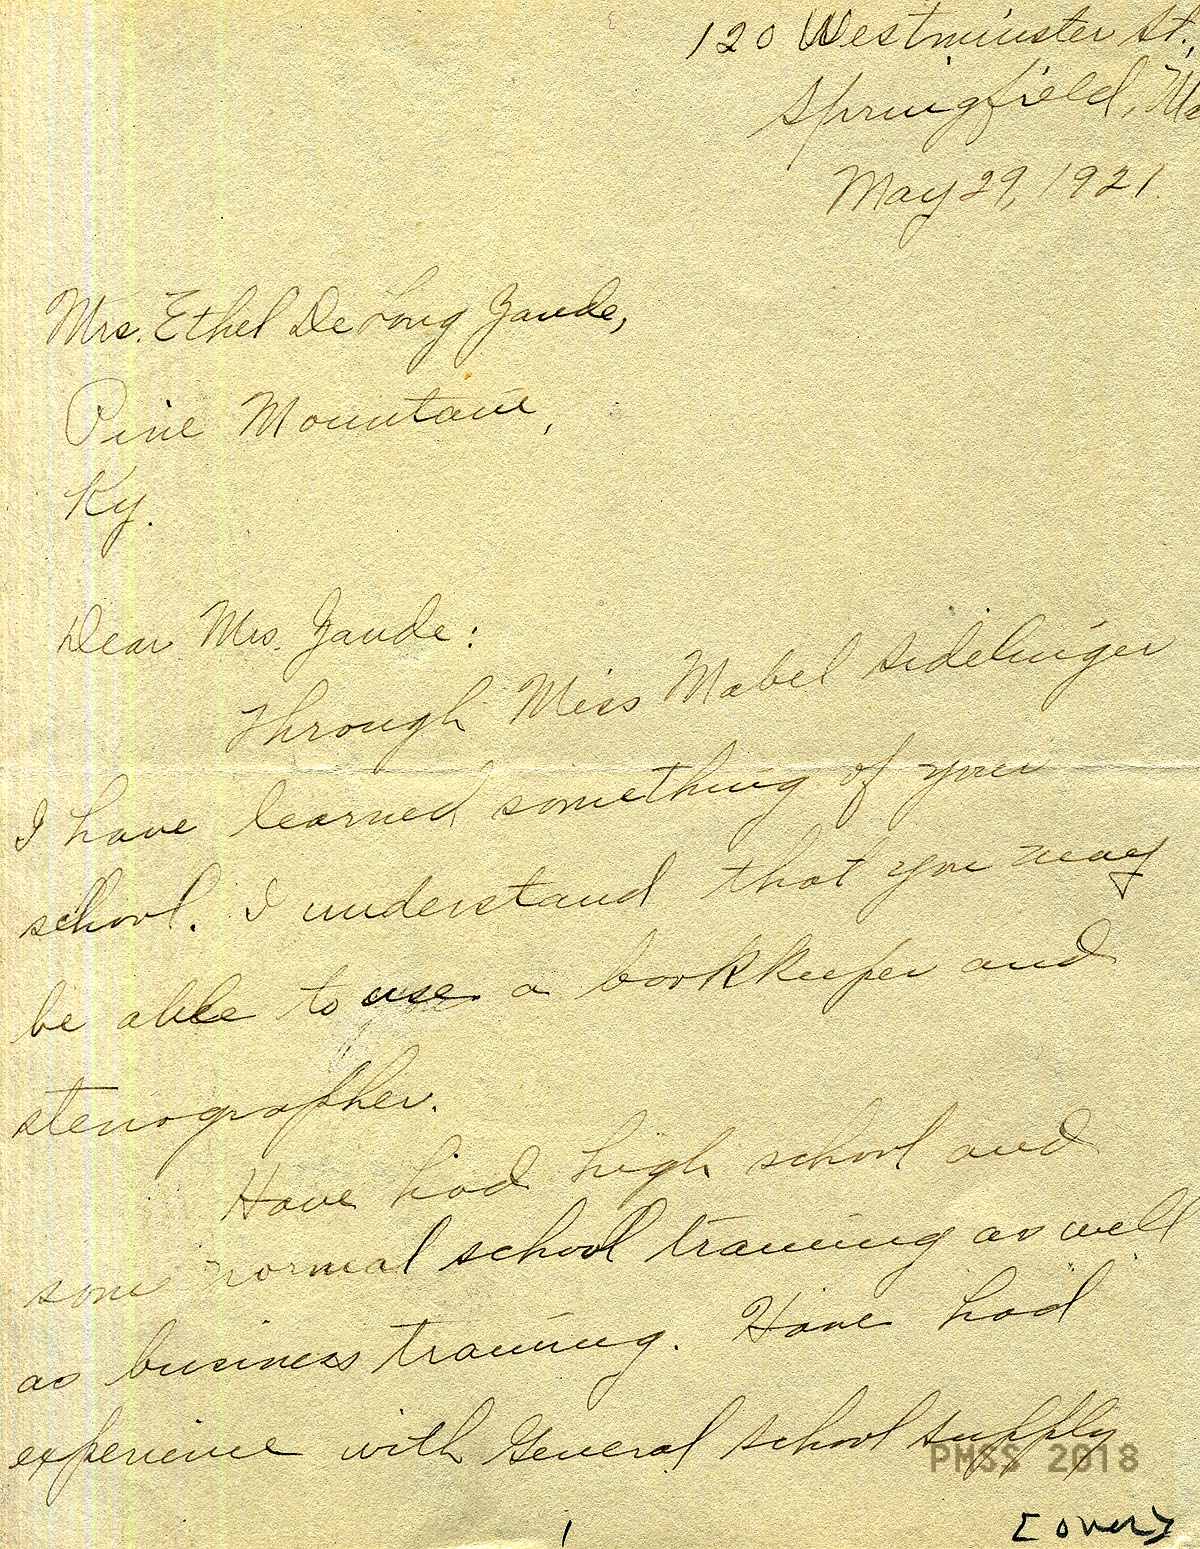 120 Westminster St.,
Springfield, Ma
May 29, 1921.
Mrs. Ethel De Long Zande,
Pine Mountain,
Ky.
Dear Mrs. Zande:
Through Miss Mabel Sidelinger
I have learned something of your
school. I understand that you may
be able to use a bookkeeper and
stenographer.
Have had high school and
some normal school training as well
as business training. Have had
experience with General School Supply
PMSS 2018
1
[over]